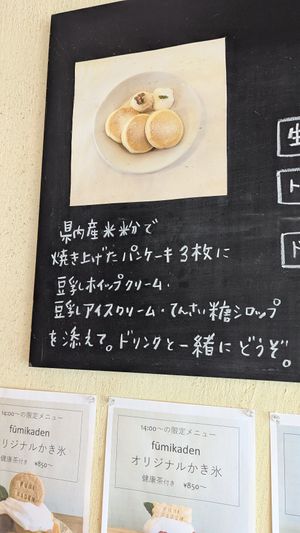 県内産米粉で
焼き上げたパンケーキ3枚に
豆乳ホイップクリーム・
豆乳アイスクリーム・てんさい糖シロップ
を添えて。ドリンクと一緒にどうぞ。
生
ト
ド
14:00〜の限定メニュー
fūmikaden
リジナルかき氷
健康茶付き ¥850〜
14:00〜の限定メニュー
fūmikaden
オリジナルかき氷
健康茶付き ¥850〜